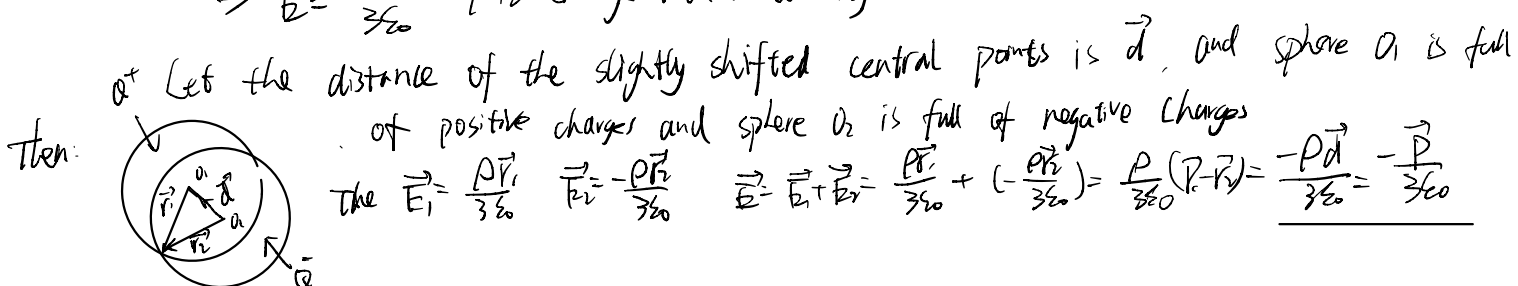 3ε₀
Q⁺ Let the distance of the slightly shifted central points is d⃗, and sphere O₁ is full
of positive charges and sphere O₂ is full of negative charges
Then:
The E⃗₁ = ρr⃗₁/3ε₀ E⃗₂ = -ρr⃗₂/3ε₀ E⃗ = E⃗₁ + E⃗₂ = ρr⃗₁/3ε₀ + (-ρr⃗₂/3ε₀) = ρ/3ε₀ (r⃗₁ - r⃗₂) = -ρd⃗/3ε₀ = -P⃗/3ε₀
O₁
r⃗₁ d⃗
O₂
r⃗₂
Q⁻